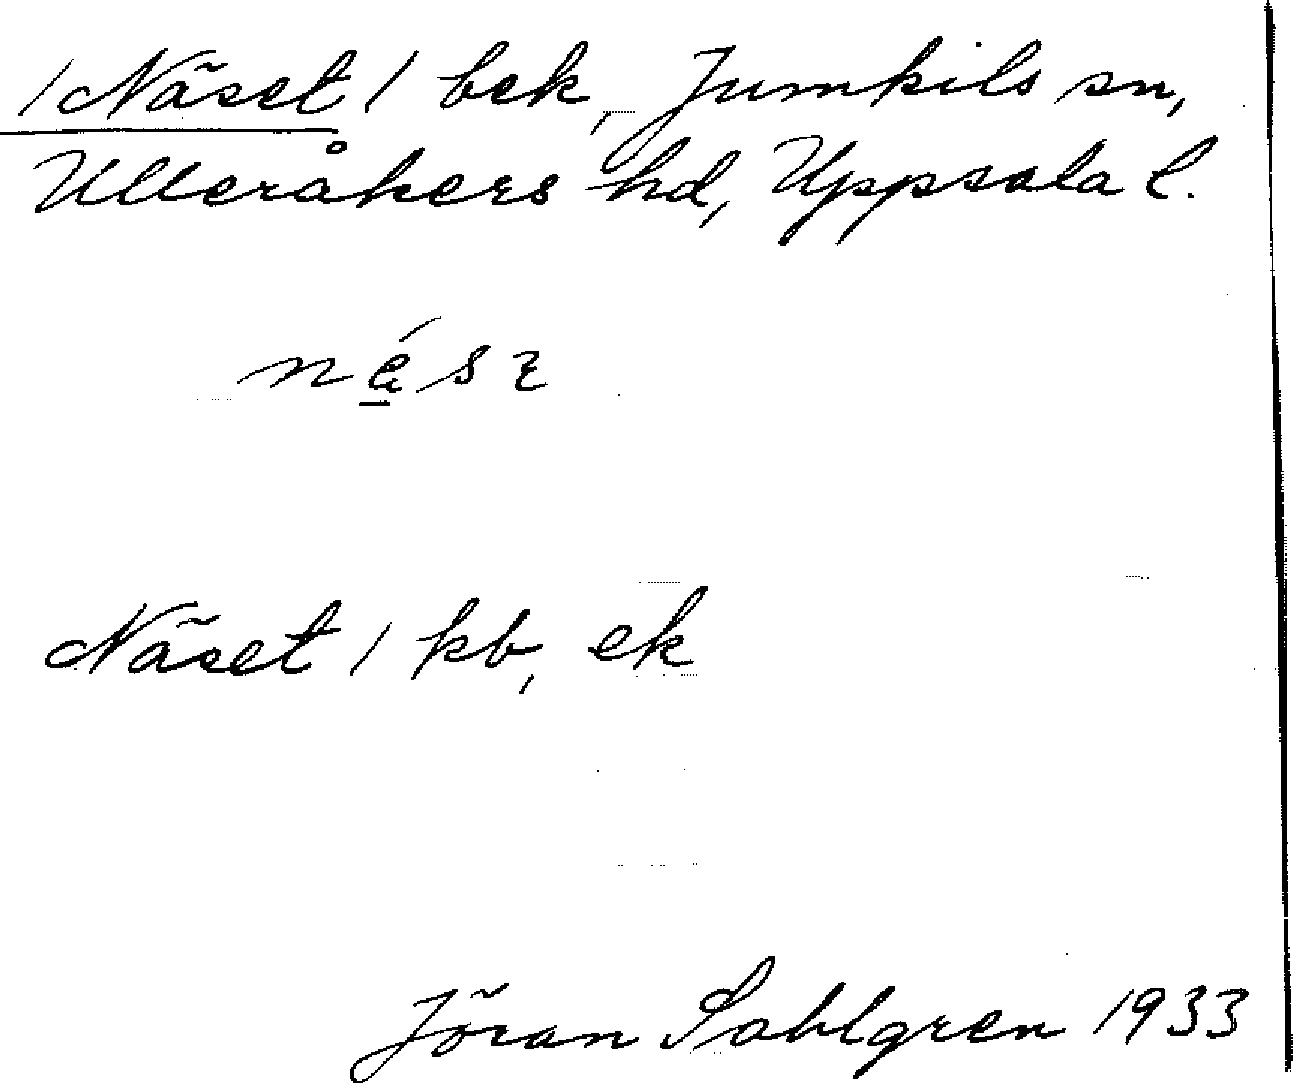 /Näset/ bek, Jumkils sn,
Ulleråkers hd, Uppsala l.
Näset / kb, ek
Jöran Sahlgren 1933